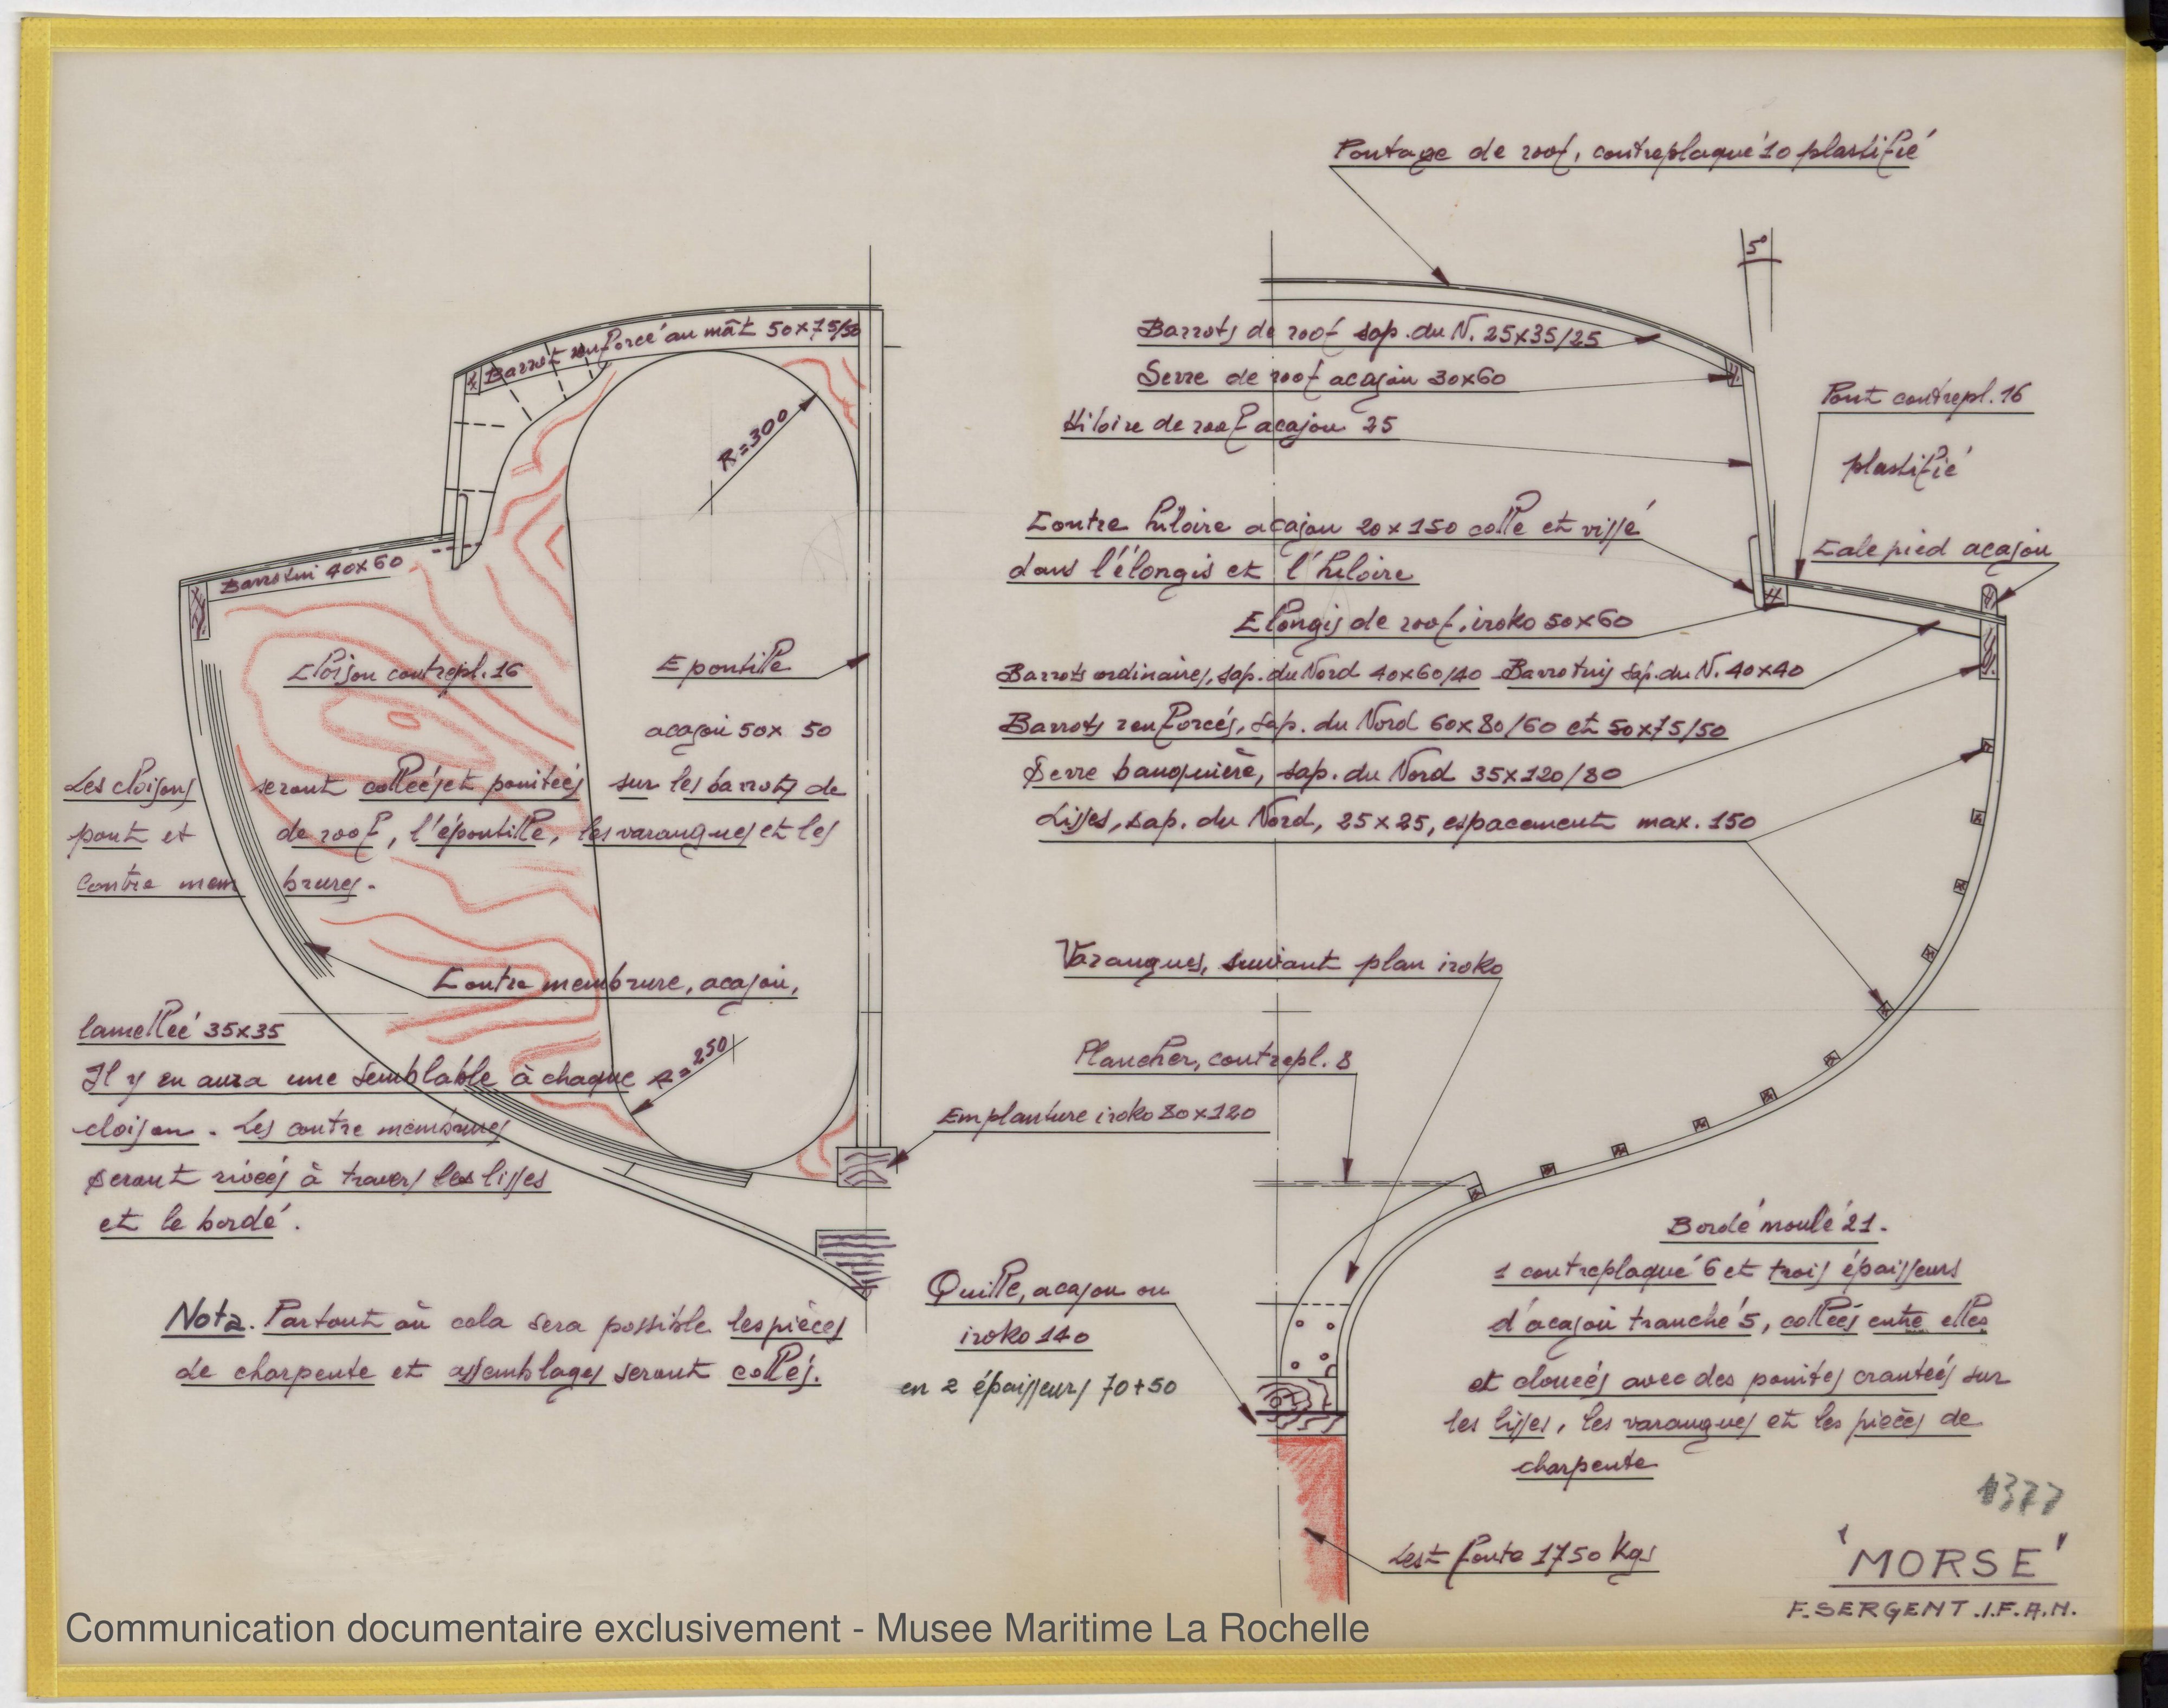 Pontage de roof, contreplaqué 10 plastifié
5°
Barrot renforcé au mât 50x75/50
Barrots de roof sap. du N. 25x35/25
Serre de roof acajou 30x60
Hiloire de roof acajou 25
Pont contrepl. 16
plastifié
R=300
Contre hiloire acajou 20x150 collé et vissé
dans l'élongis et l'hiloire
Cale pied acajou
Barrotin 40x60
Elongis de roof, iroko 50x60
Cloison contrepl. 16
Epontille
acajou 50x 50
Barrots ordinaires, sap. du Nord 40x60/40 Barrotins sap. du N. 40x40
Barrots renforcés, sap. du Nord 60x80/60 et 50x75/50
Serre bauquière, sap. du Nord 35x120/80
Lisses, sap. du Nord, 25x25, espacement max. 150
Les cloisons seront collées et pointées sur les barrots de
pont et de roof, l'épontille, les varangues et les
contre membrures.
Contre membrure, acajou,
lamellée 35x35
Il y en aura une semblable à chaque
cloison. Les contre membrures
seront rivées à travers les lisses
et le bordé.
R=250
Varangues, suivant plan iroko
Plancher, contrepl. 8
Emplanture iroko 80x120
Nota. Partout où cela sera possible les pièces
de charpente et assemblages seront collés.
Quille, acajou ou
iroko 140
en 2 épaisseurs 70+50
Bordé moulé 21.
1 contreplaqué 6 et trois épaisseurs
d'acajou tranché 5, collées entre elles
et clouées avec des pointes crantées sur
les lisses, les varangues et les pièces de
charpente
Lest fonte 1750 Kgs
'MORSE'
F. SERGENT. I.F.A.N.
Communication documentaire exclusivement - Musee Maritime La Rochelle